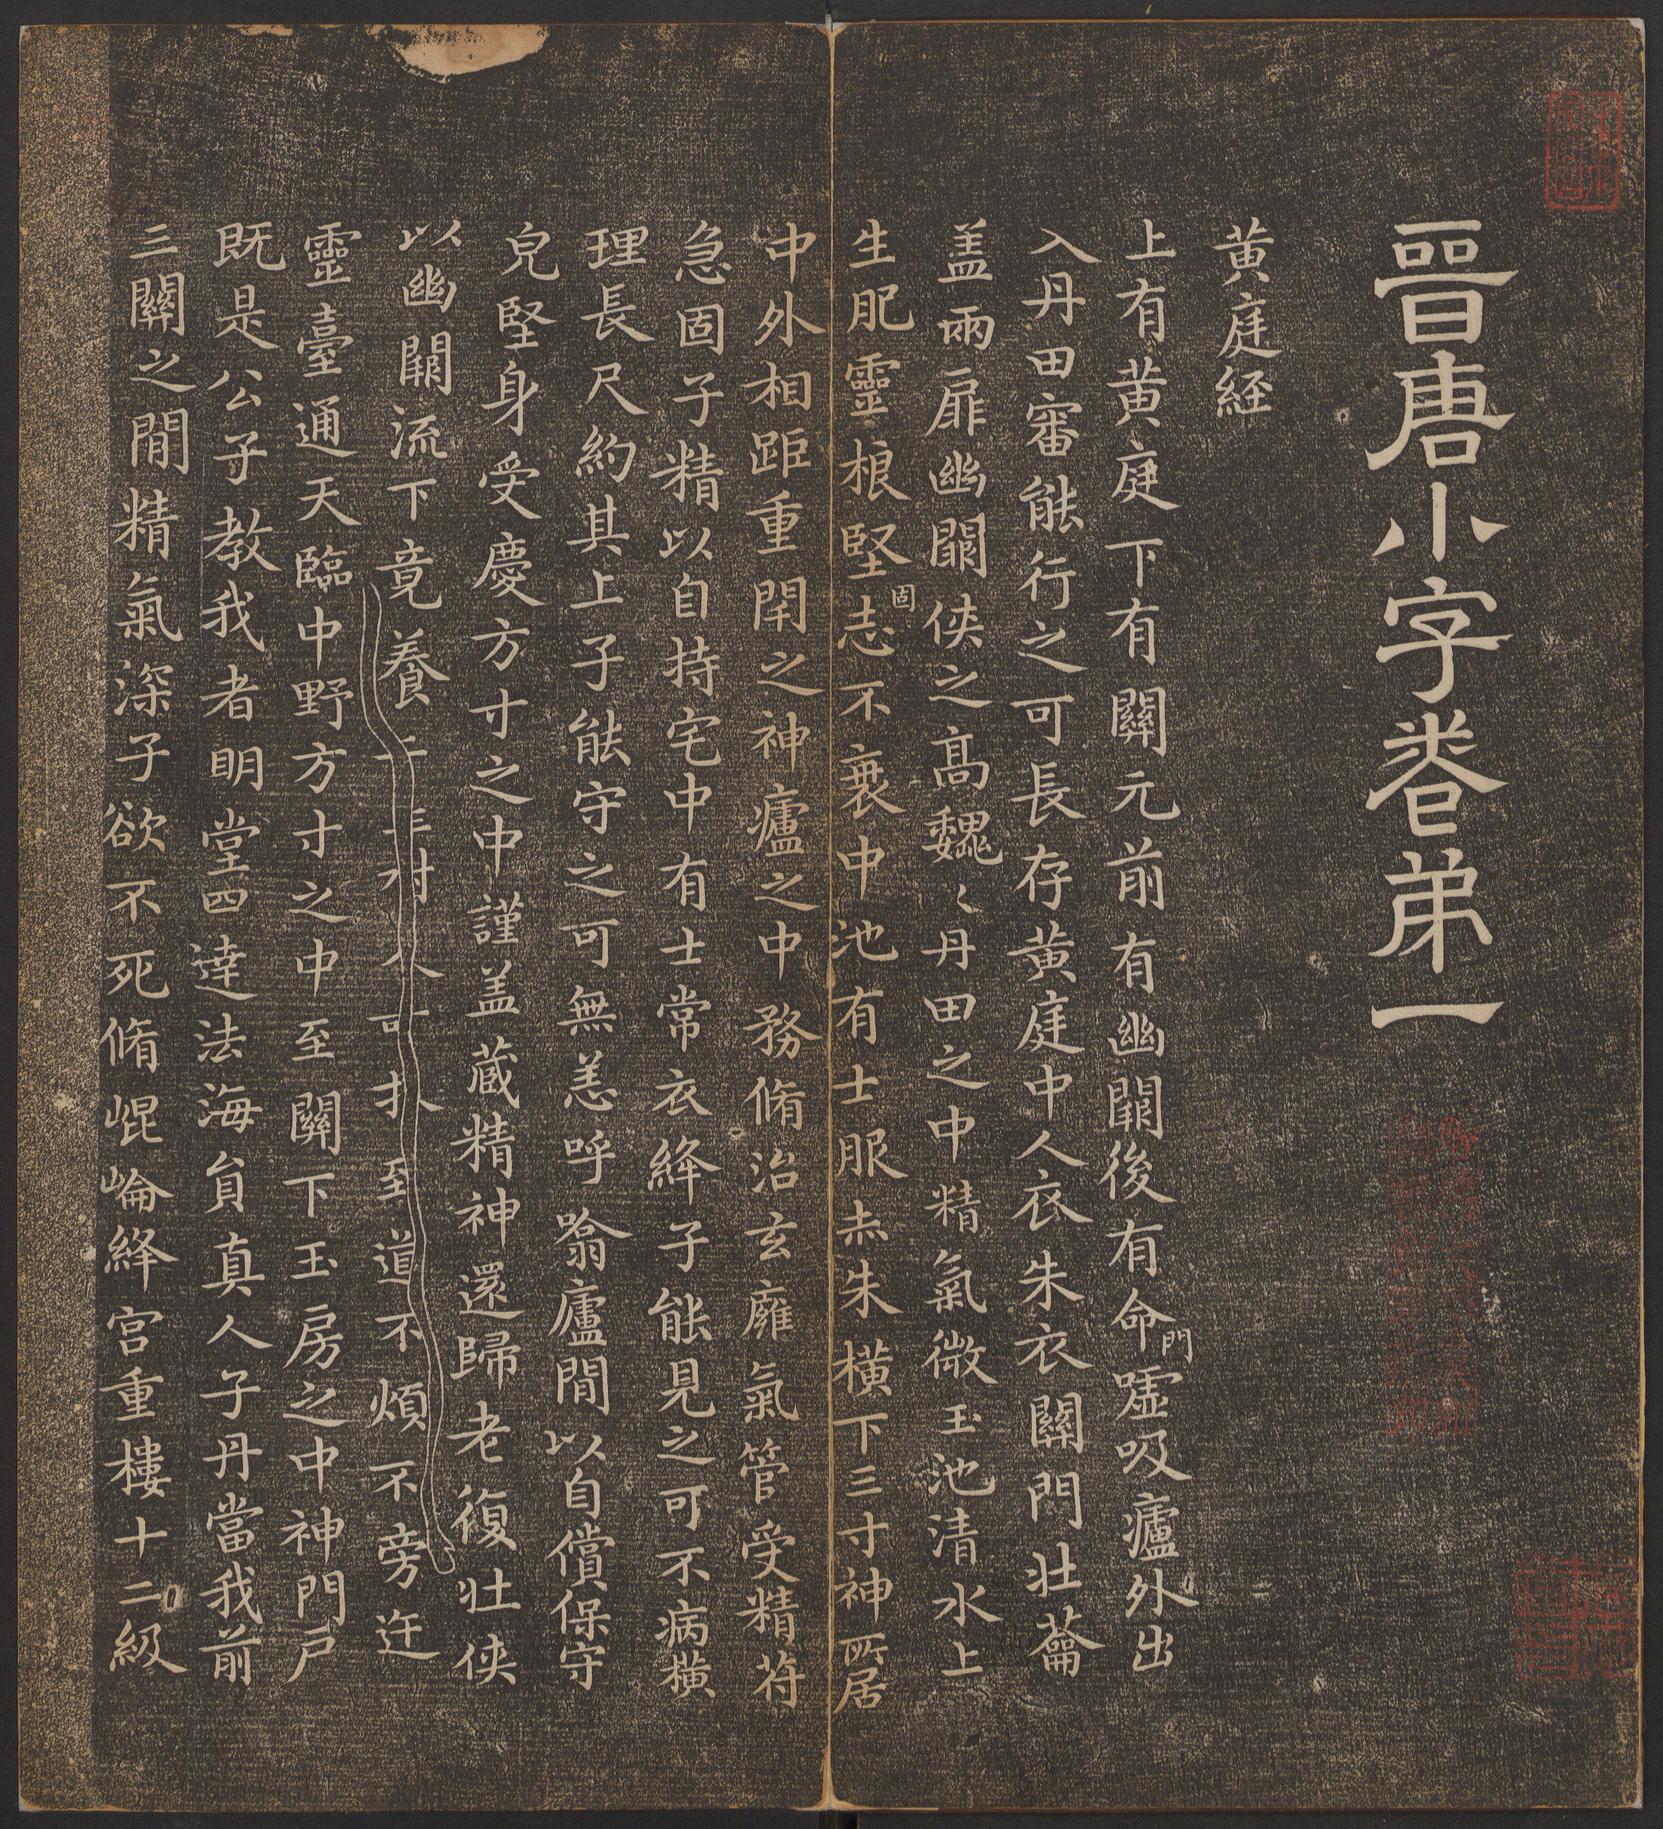 晉唐小字卷弟一
黄庭經
上有黄庭下有關元前有幽闕後有命門嘘吸廬外出
入丹田審能行之可長存黄庭中人衣朱衣關門壯蘥
盖兩扉幽闕俠之高魏〻丹田之中精氣微玉池清水上
生肥靈根堅固志不衰中池有士服赤朱横下三寸神所居
中外相距重閇之神廬之中務脩治玄廱氣管受精苻
急固子精以自持宅中有士常衣絳子能見之可不病横
理長尺約其上子能守之可無恙呼噏廬間以自償保守
皃堅身受慶方寸之中謹盖藏精神還歸老復壯俠
以幽闕流下竟養子
至道不煩不旁迕
靈臺通天臨中野方寸之中至關下玉房之中神門戶
既是公子教我者明堂四達法海負真人子丹當我前
三關之間精氣深子欲不死脩崐崘絳宫重樓十二級